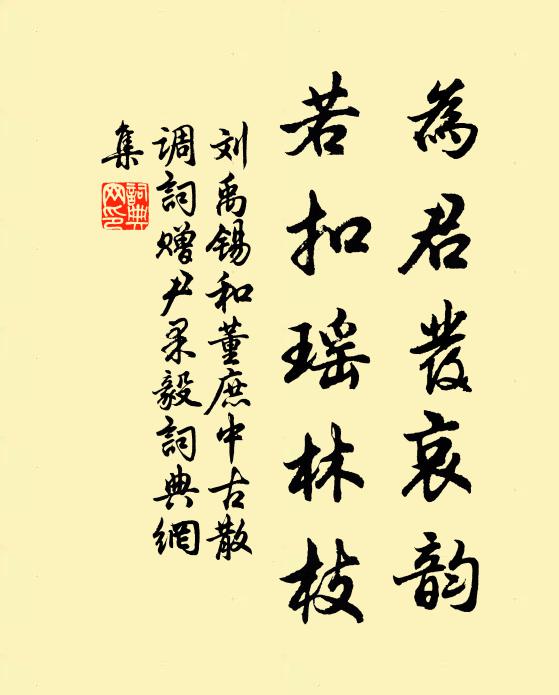 為君發哀韵
若扣瑶林枝
刘禹锡和董庶中古散
调詞赠尹果毅詞典網
集
詞典网印